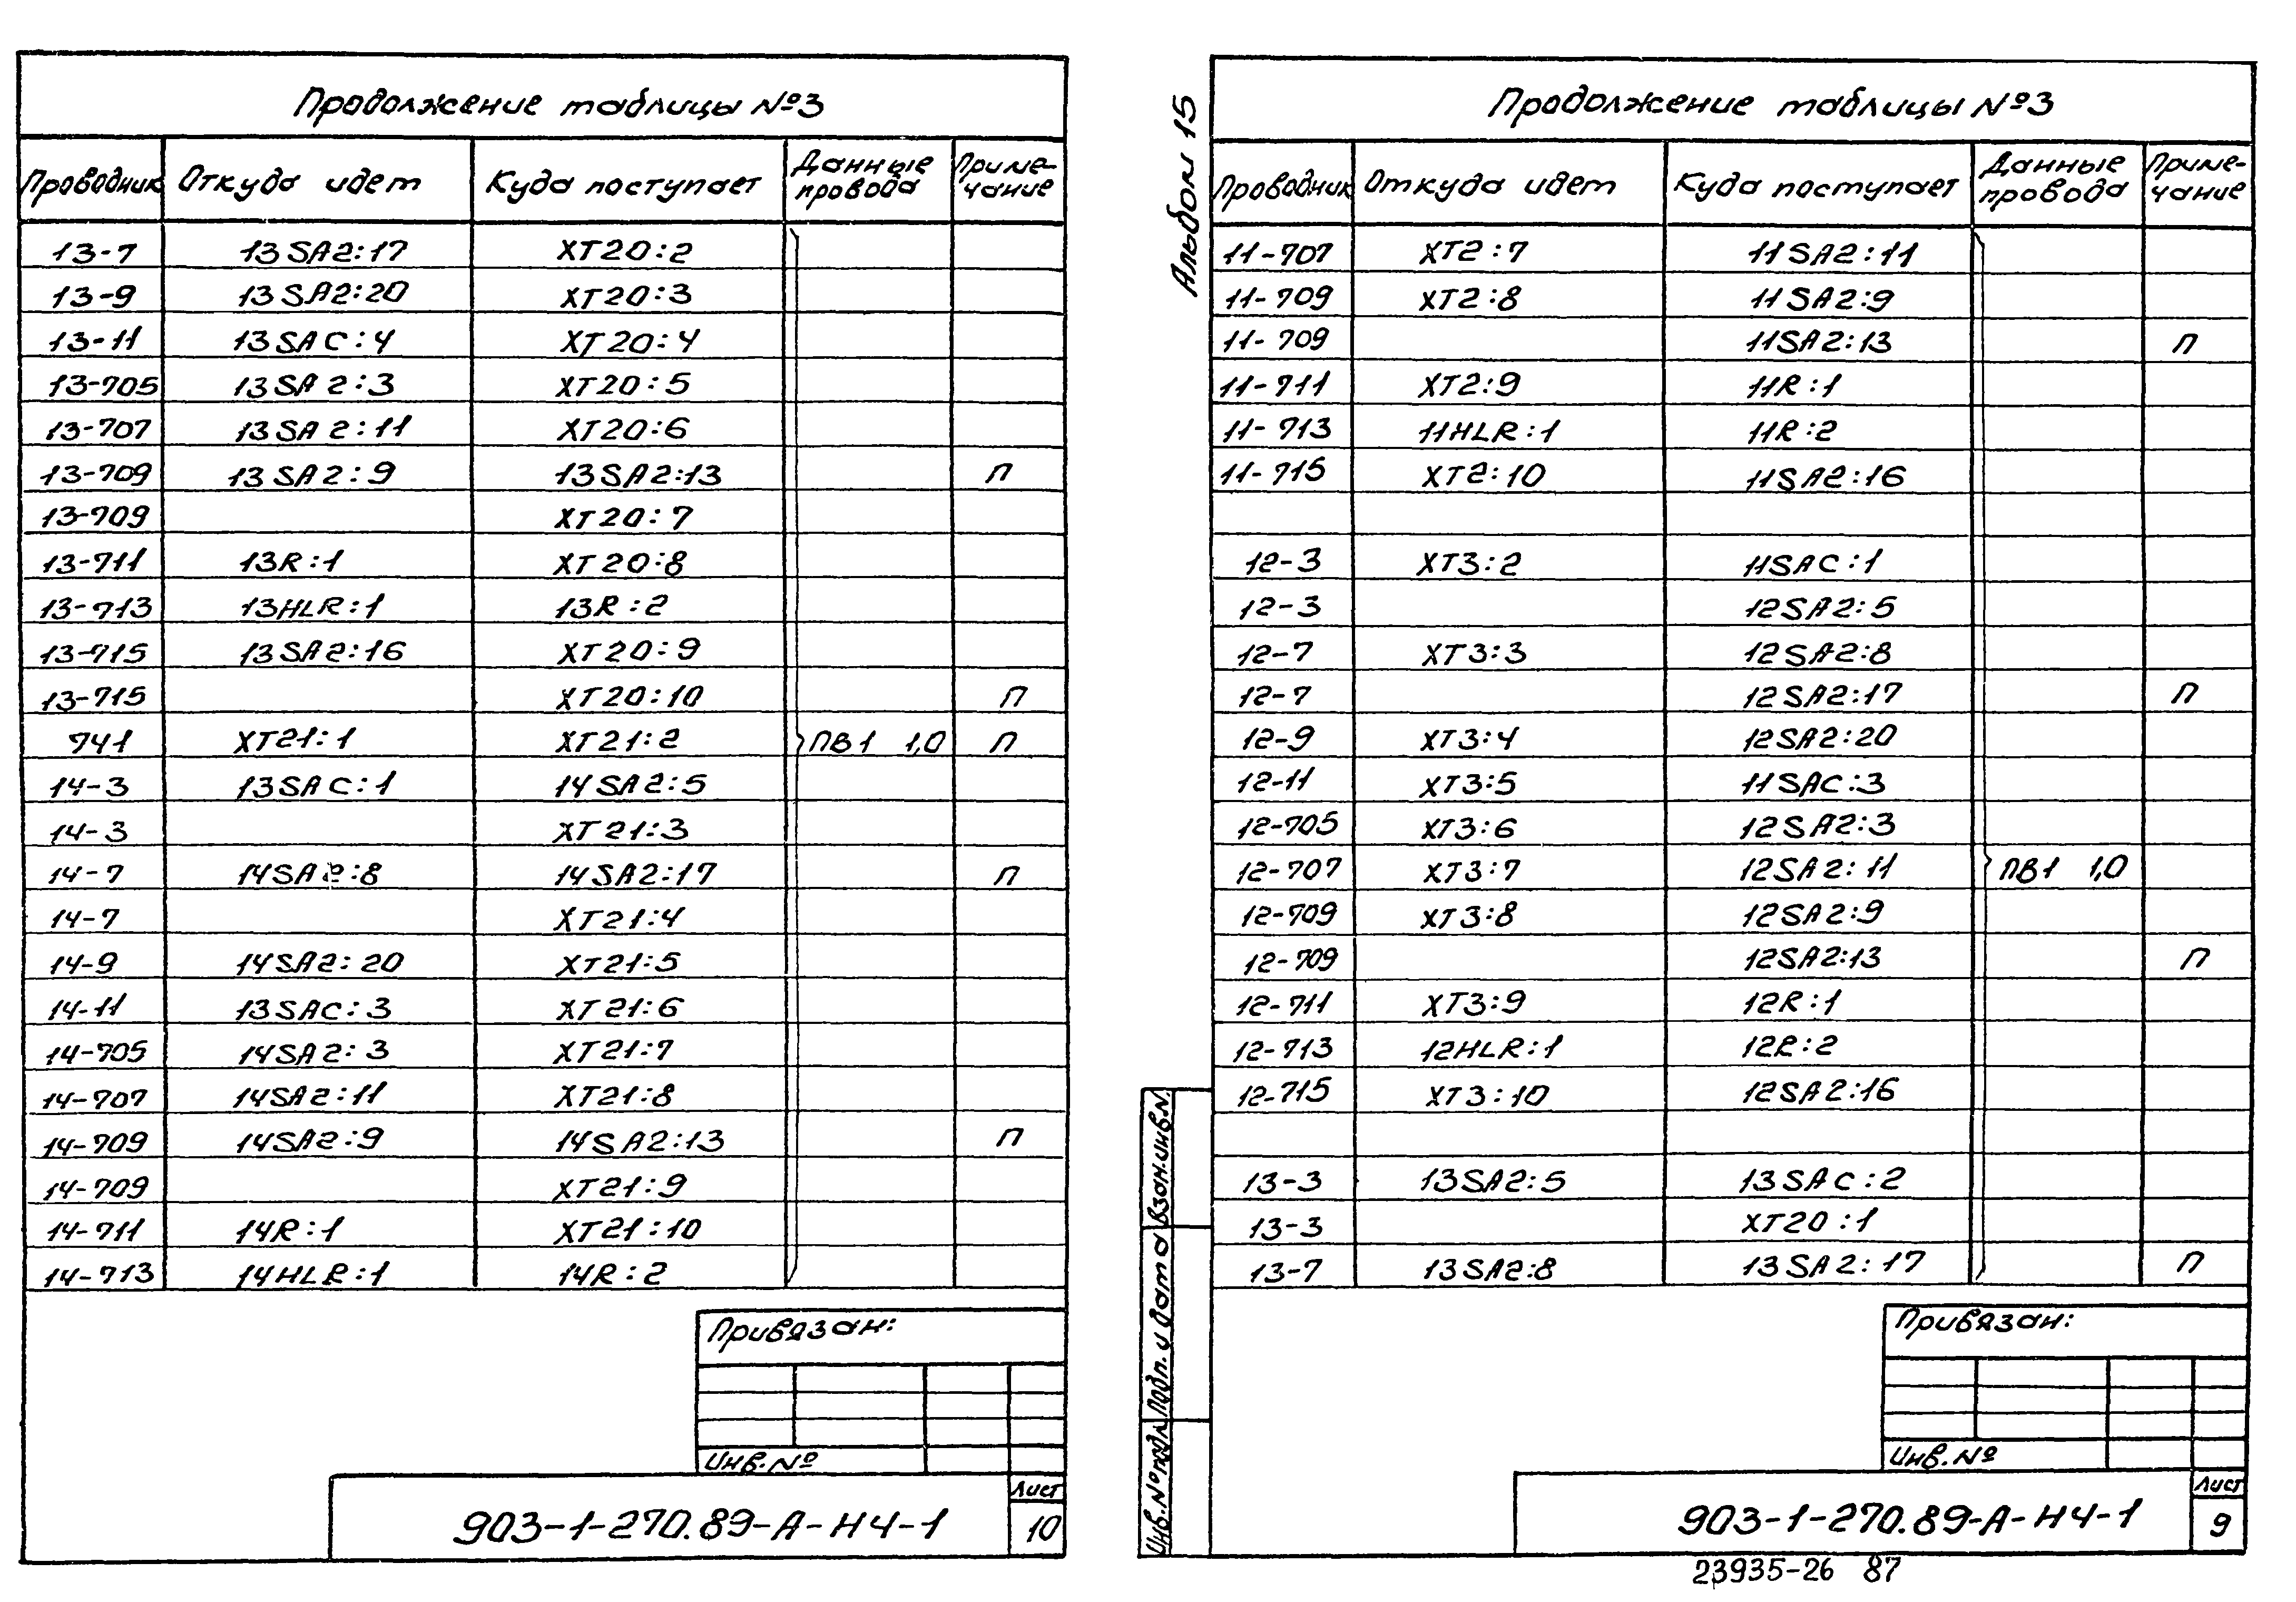 Продолжение таблицы №3
Проводник Откуда идет Куда поступает Данные провода Приме-чание
13-7 13SA2:17 XT20:2
13-9 13SA2:20 XT20:3
13-11 13SAC:4 XT20:4
13-705 13SA2:3 XT20:5
13-707 13SA2:11 XT20:6
13-709 13SA2:9 13SA2:13 П
13-709 XT20:7
13-711 13R:1 XT20:8
13-713 13HLR:1 13R:2
13-715 13SA2:16 XT20:9
13-715 XT20:10 П
741 XT21:1 XT21:2 ПВ1 1,0 П
14-3 13SAC:1 14SA2:5
14-3 XT21:3
14-7 14SA2:8 14SA2:17 П
14-7 XT21:4
14-9 14SA2:20 XT21:5
14-11 13SAC:3 XT21:6
14-705 14SA2:3 XT21:7
14-707 14SA2:11 XT21:8
14-709 14SA2:9 14SA2:13 П
14-709 XT21:9
14-711 14R:1 XT21:10
14-713 14HLR:1 14R:2
Привязан:
Инв.№
903-1-270.89-А-НЧ-1
Лист
10
Альбом 15
Продолжение таблицы №3
Проводник Откуда идет Куда поступает Данные провода Приме-чание
11-707 XT2:7 11SA2:11
11-709 XT2:8 11SA2:9
11-709 11SA2:13 П
11-711 XT2:9 11R:1
11-713 11HLR:1 11R:2
11-715 XT2:10 11SA2:16
12-3 XT3:2 11SAC:1
12-3 12SA2:5
12-7 XT3:3 12SA2:8
12-7 12SA2:17 П
12-9 XT3:4 12SA2:20
12-11 XT3:5 11SAC:3
12-705 XT3:6 12SA2:3
12-707 XT3:7 12SA2:11 ПВ1 1,0
12-709 XT3:8 12SA2:9
12-709 12SA2:13 П
12-711 XT3:9 12R:1
12-713 12HLR:1 12R:2
12-715 XT3:10 12SA2:16
13-3 13SA2:5 13SAC:2
13-3 XT20:1
13-7 13SA2:8 13SA2:17 П
Взам.инв.№
Подп. и дата
Инв.№ подл.
Привязан:
Инв.№
903-1-270.89-А-НЧ-1
Лист
9
23935-26 87